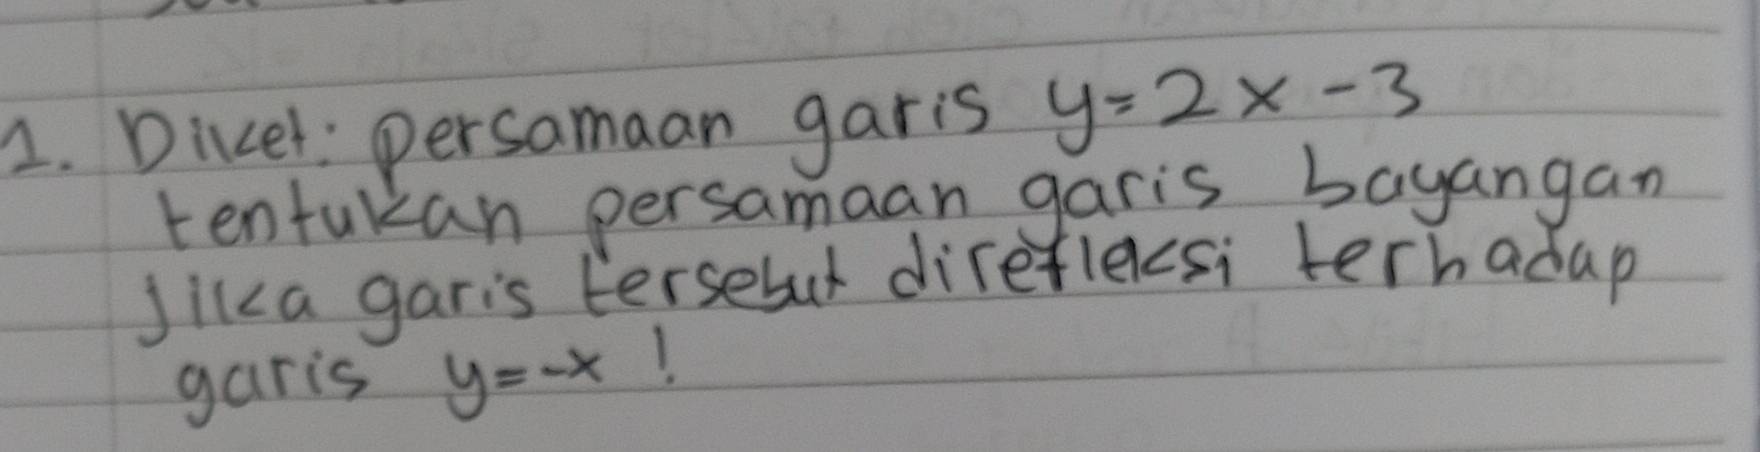 1. Diket: persamaan garis y=2x-3
tentukan persamaan garis bayangan
Jika garis tersebut direfleksi terhadap
garis y=-x !